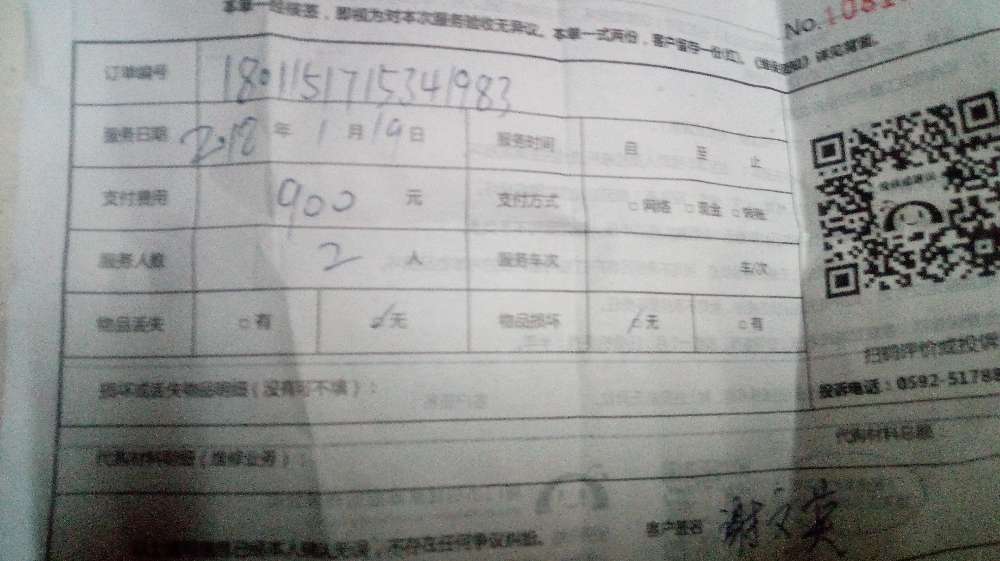 本单一经接签，即视为对本次服务验收无异议。本单一式两份，客户留存一份(红)。
No.1081
订单编号 1801151715341983
服务日期 2018 年 1 月 19 日 服务时间 自 至 止
支付费用 900 元 支付方式 □网络 □现金 □转账
服务人数 2 人 服务车次 车/次
物品丢失 □有 ☑无 物品损坏 ☑无 □有
扫码评价或投诉
投诉电话：0592-5178
损坏或丢失物品明细（没有可不填）：
代购材料总额：
代购材料明细（维修业务）：
本人确认无误，不存在任何争议纠纷。
客户签名 谢文英